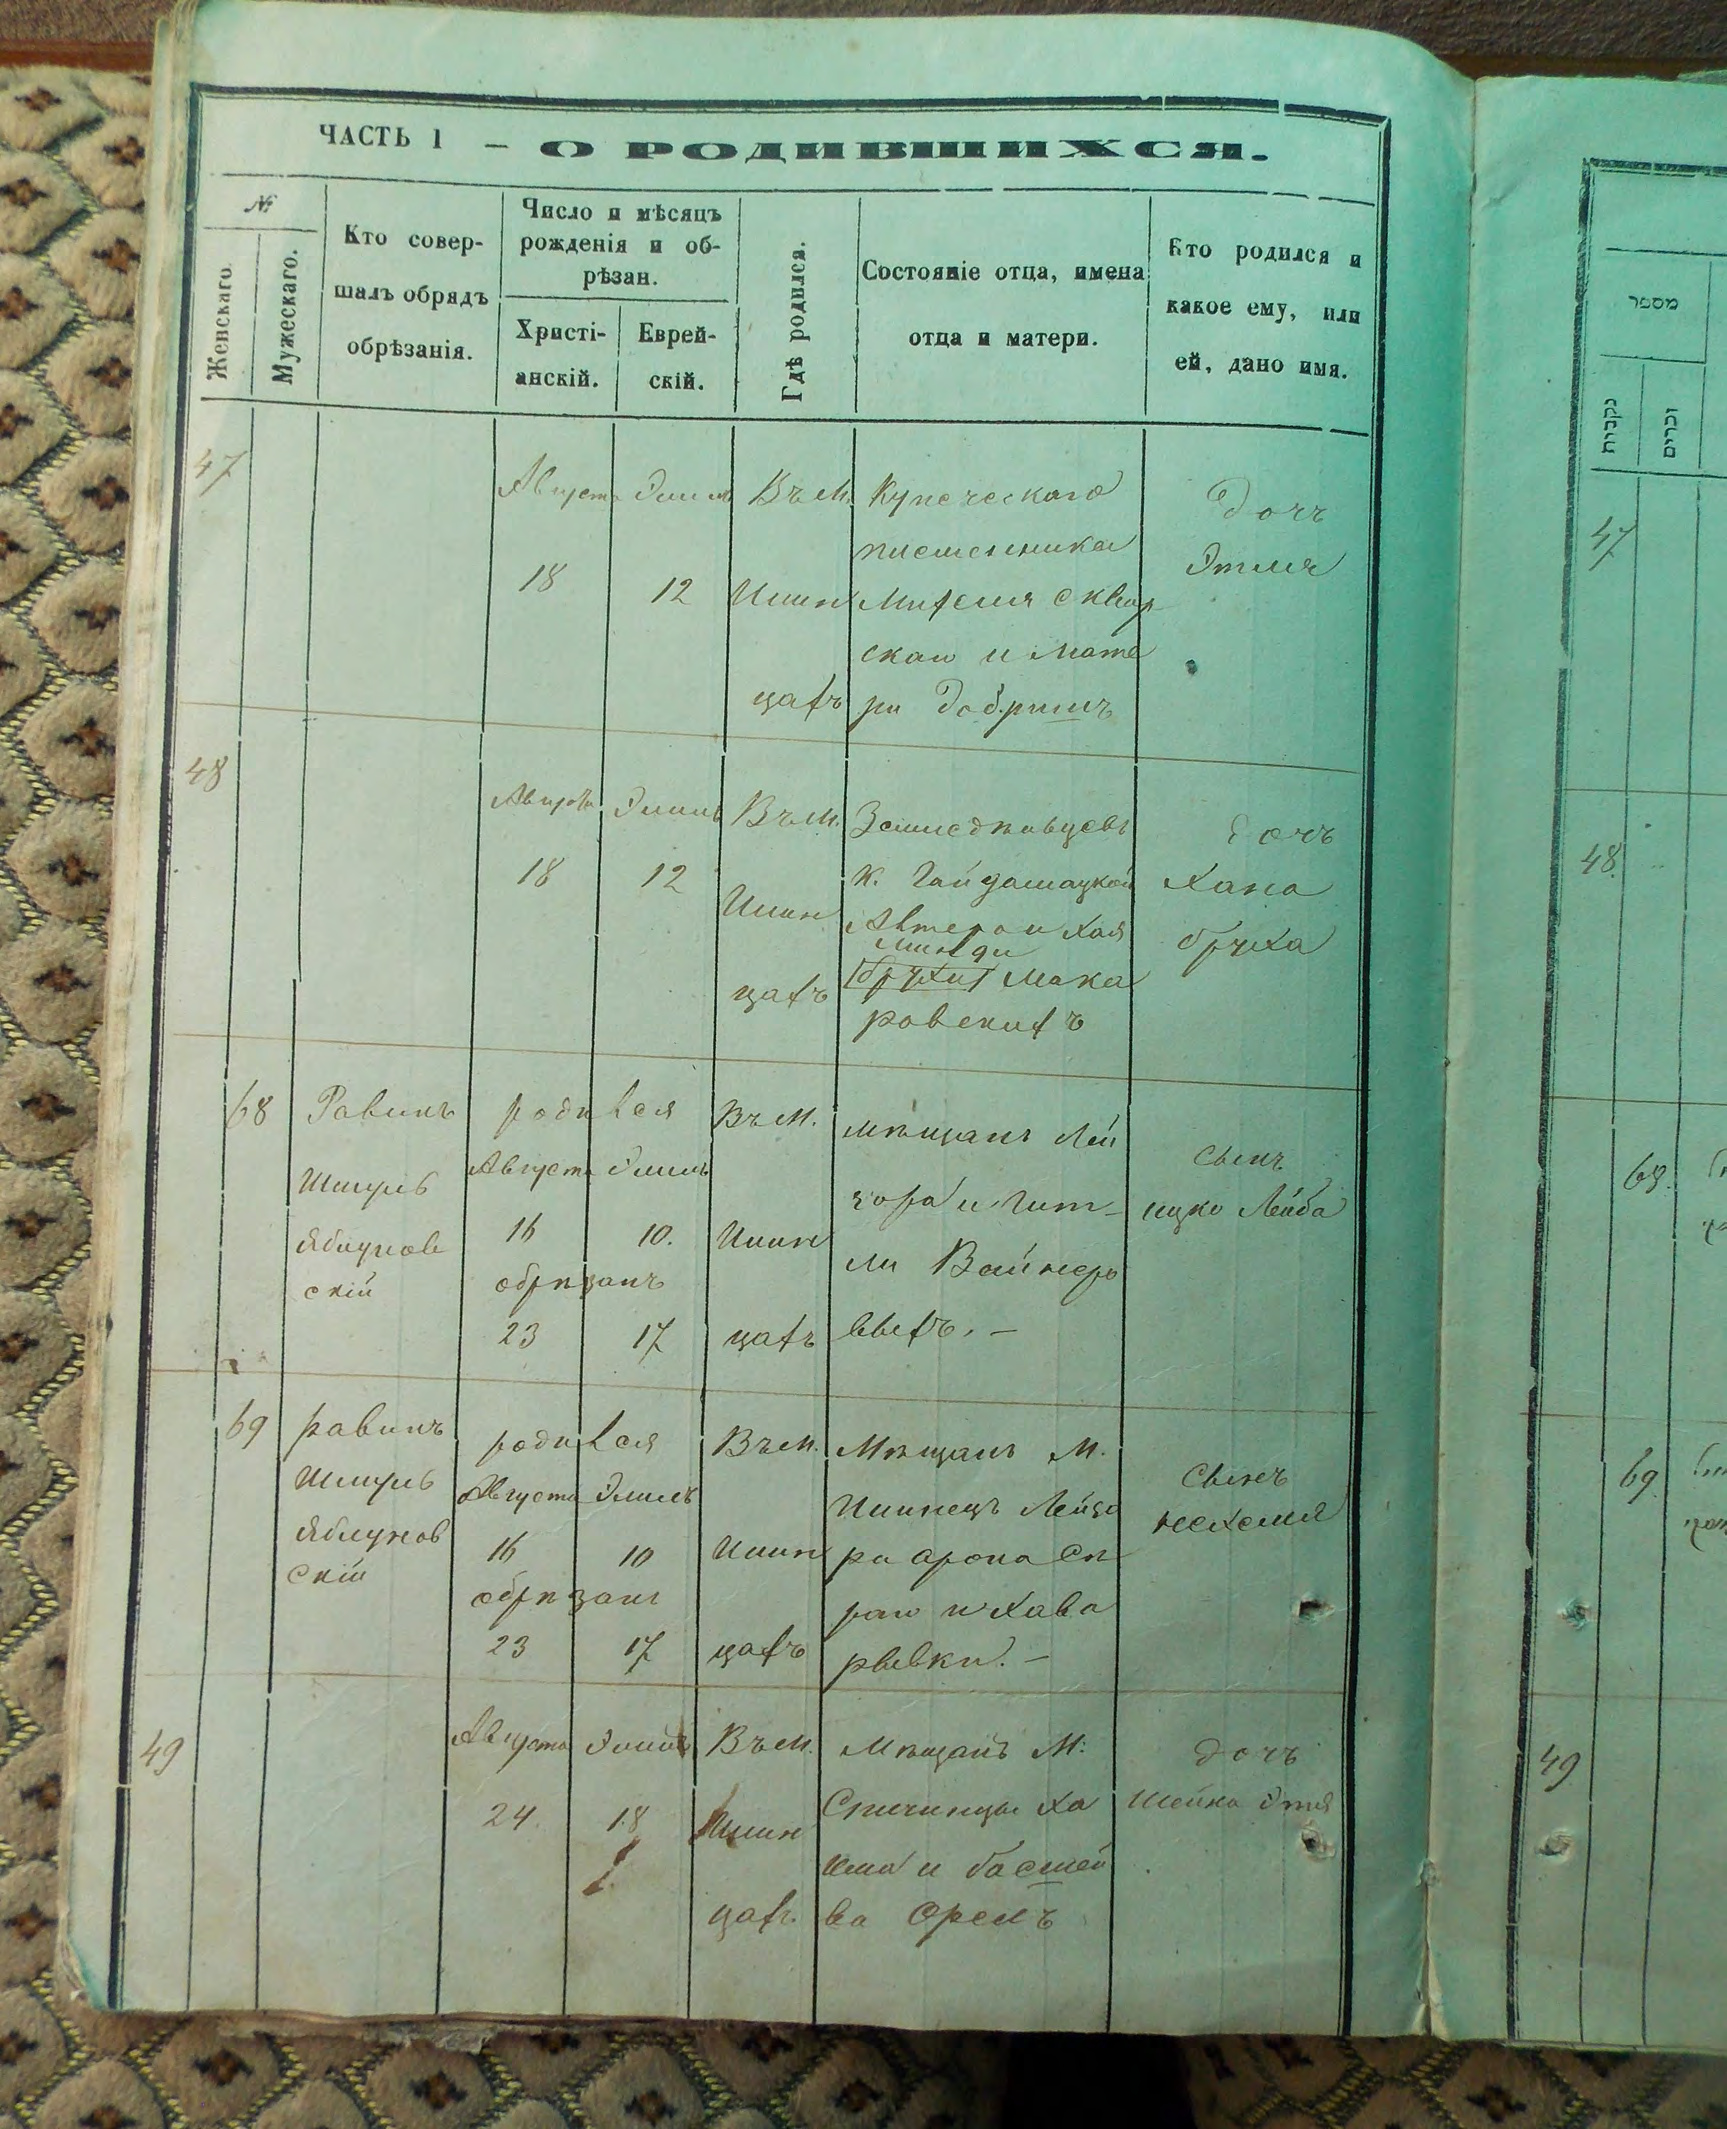 ЧАСТЬ 1 – О РОДИВШИХСЯ.
№
Женскаго.
Мужескаго.
Кто совер-
шалъ обрядъ
обрѣзанія.
Число и мѣсяцъ
рожденія и об-
рѣзан.
Христі-
анскій.
Еврей-
скій.
Гдѣ родился.
Состояніе отца, имена
отца и матери.
Кто родился и
какое ему, или
ей, дано имя.
47
Августа
18
Элилъ
12
Въ м.
Илин
цахъ
Купеческаго
племенника
Михеля Сквир
скаго и мате
ри Добришъ
дочъ
Этля
48
Августа
18
Элилъ
12
Въ м.
Илин
цахъ
к. Гайдамацкой
и Хая
Минди
Брухи Мака
ровскихъ
дочъ
Хана
бруха
68
Равинъ
Шмуль
Яблунов
скій
родился
Августа
16
Элилъ
10.
обрѣзанъ
23
17
Въ м.
Илин
цахъ
мѣщанъ Лей
зора и Гит-
ли Вайнеро
выхъ. –
сынъ
ицко Лейба
69
равинъ
Шмуль
Яблунов
скій
родился
Августа
16
Элилъ
10
обрѣзанъ
23
17
Въ м.
Илин
цахъ
Мѣщанъ М.
Илинецъ Лейзо
ра арона
и Хава
рывки. –
Сынъ
нехемя
49
Августа
24
Элилъ
18
Въ м.
Илин
цахъ
Мѣщанъ М.
Спичинцы Ха
има и басшей
ва Орелъ
дочъ
Шейна Этя
מספר
נקבות
זכרים
47
48.
68.
69.
49